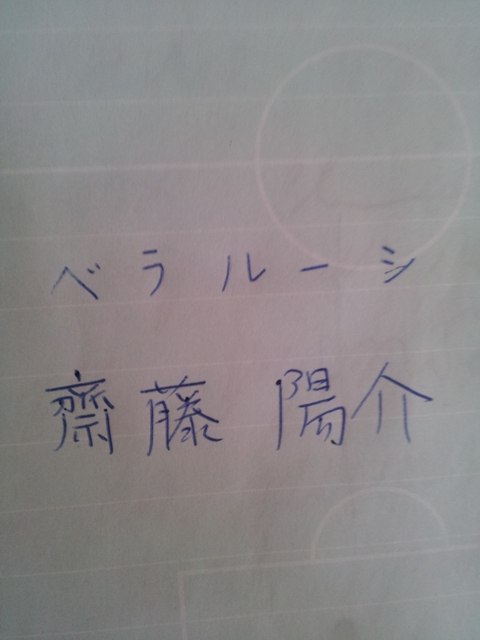 ベラルーシ
齋藤 陽介